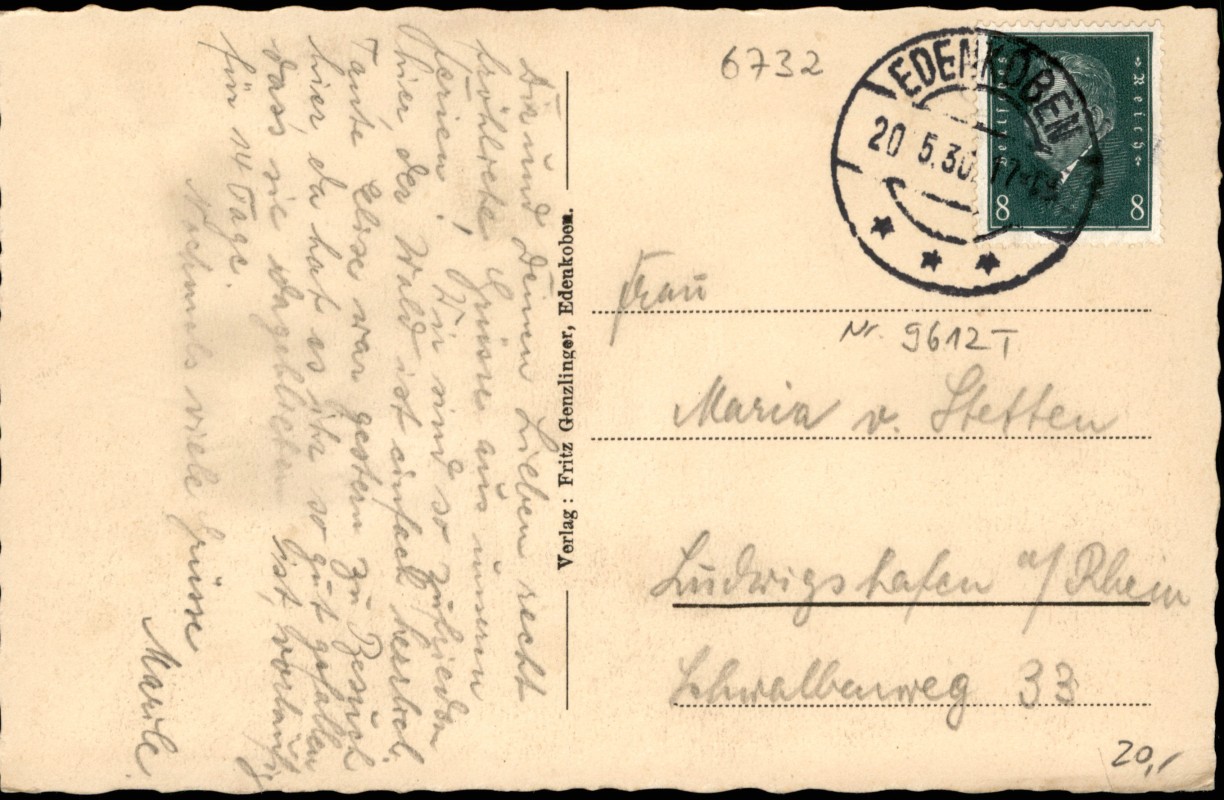 Dir und Deinen Lieben recht
fröhliche Grüsse aus unsern
Ferien! Wir sind so zufrieden
hier, der Wald ist einfach herrlich.
Tante Elise war gestern zu Besuch
hier da hat es ihr so gut gefallen
dass sie dageblieben ist, vorläufig
für 14 Tage.
Nochmals viele Grüsse
Marile.
Verlag: Fritz Genzlinger, Edenkoben.
6732
EDENKOBEN
20 5.30. 17-
Deutsches Reich
8 8
Frau
Nr. 9612 I
Maria v. Stetten
Ludwigshafen a/Rhein
Schwalbenweg 33
20,-